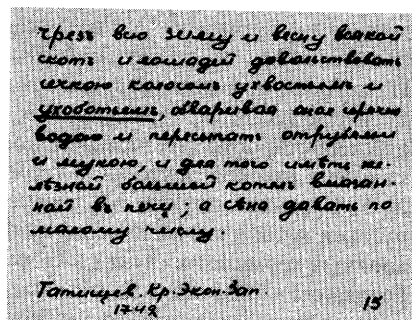 чрезъ всю зиму и весну всякой
скотъ и лошадей довольствовать
ичкою колосомъ ухвостьемъ и
ухоботьемъ, обваривая оное горячею
водою и пересыпать отрубями
и мукою, и для того имѣть же-
лѣзной большой котелъ вмазан-
ной въ печи; а сѣна давать по
малому числу.
Татищев. Кр. Экон. Зап.
1742
15